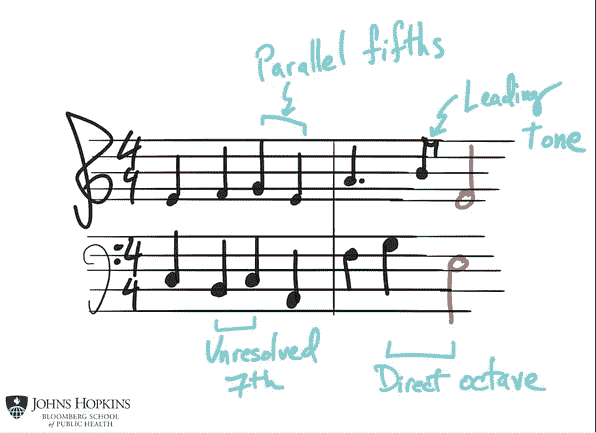 Parallel fifths
Leading
tone
4
4
4
4
Unresolved
7th
Direct octave
JOHNS HOPKINS
BLOOMBERG SCHOOL
of PUBLIC HEALTH